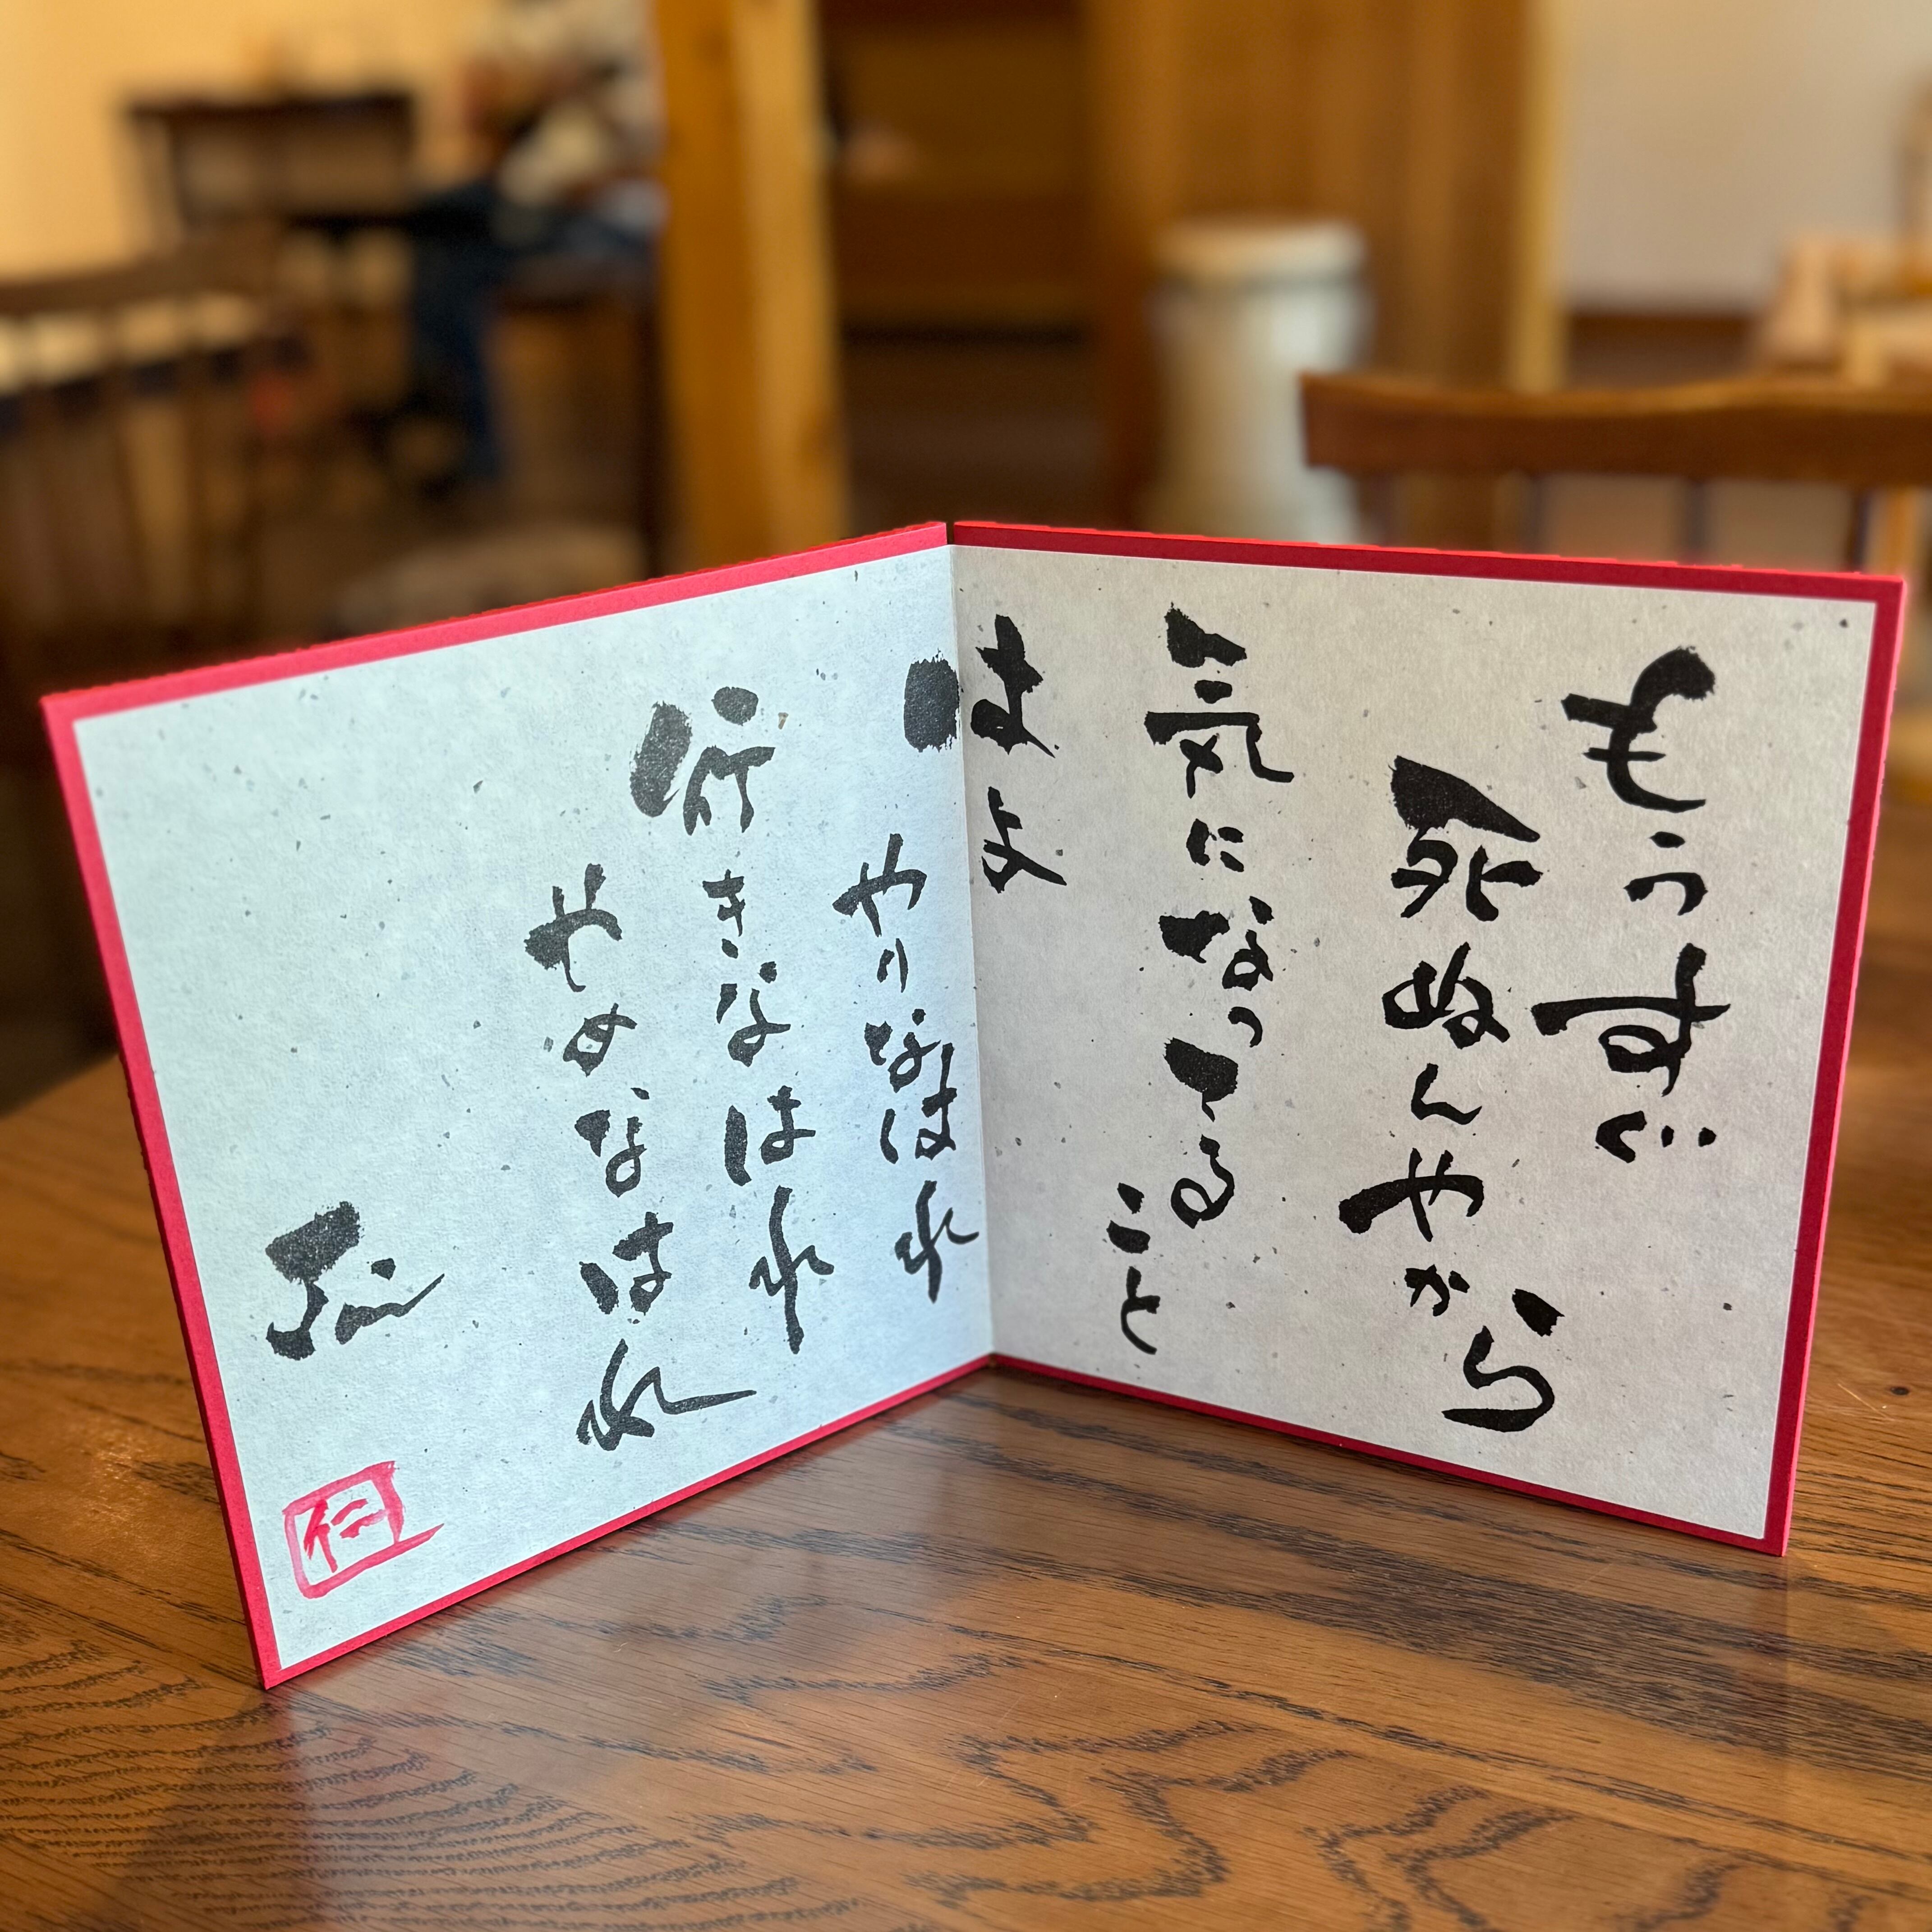 もうすぐ
死ぬんやから
気になってる
こと
はよ
やりなはれ
行きなはれ
やめなはれ
Jin
仁